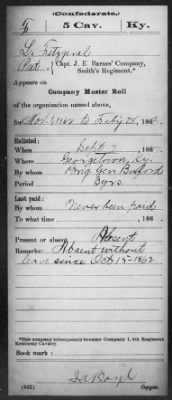 (Confederate.)
F 5 Cav. Ky.
L. Fitzgeral
Pvt., Capt. J. E. Barnes' Company,
Smith's Regiment.*
Appears on
Company Muster Roll
of the organization named above,
for Nov. & Dec. to Feby 28, 1863.
Enlisted:
When Sept 2, 186
Where Georgetown, Ky.
By whom Brig. Gen Buford
Period 3 yrs.
Last paid:
By whom Never been paid
To what time , 186 .
Present or absent Absent
Remarks: Absent without
leave since Oct 15-1862
*This company subsequently became Company I, 5th Regiment
Kentucky Cavalry.
Book mark:
(642) Copyist.